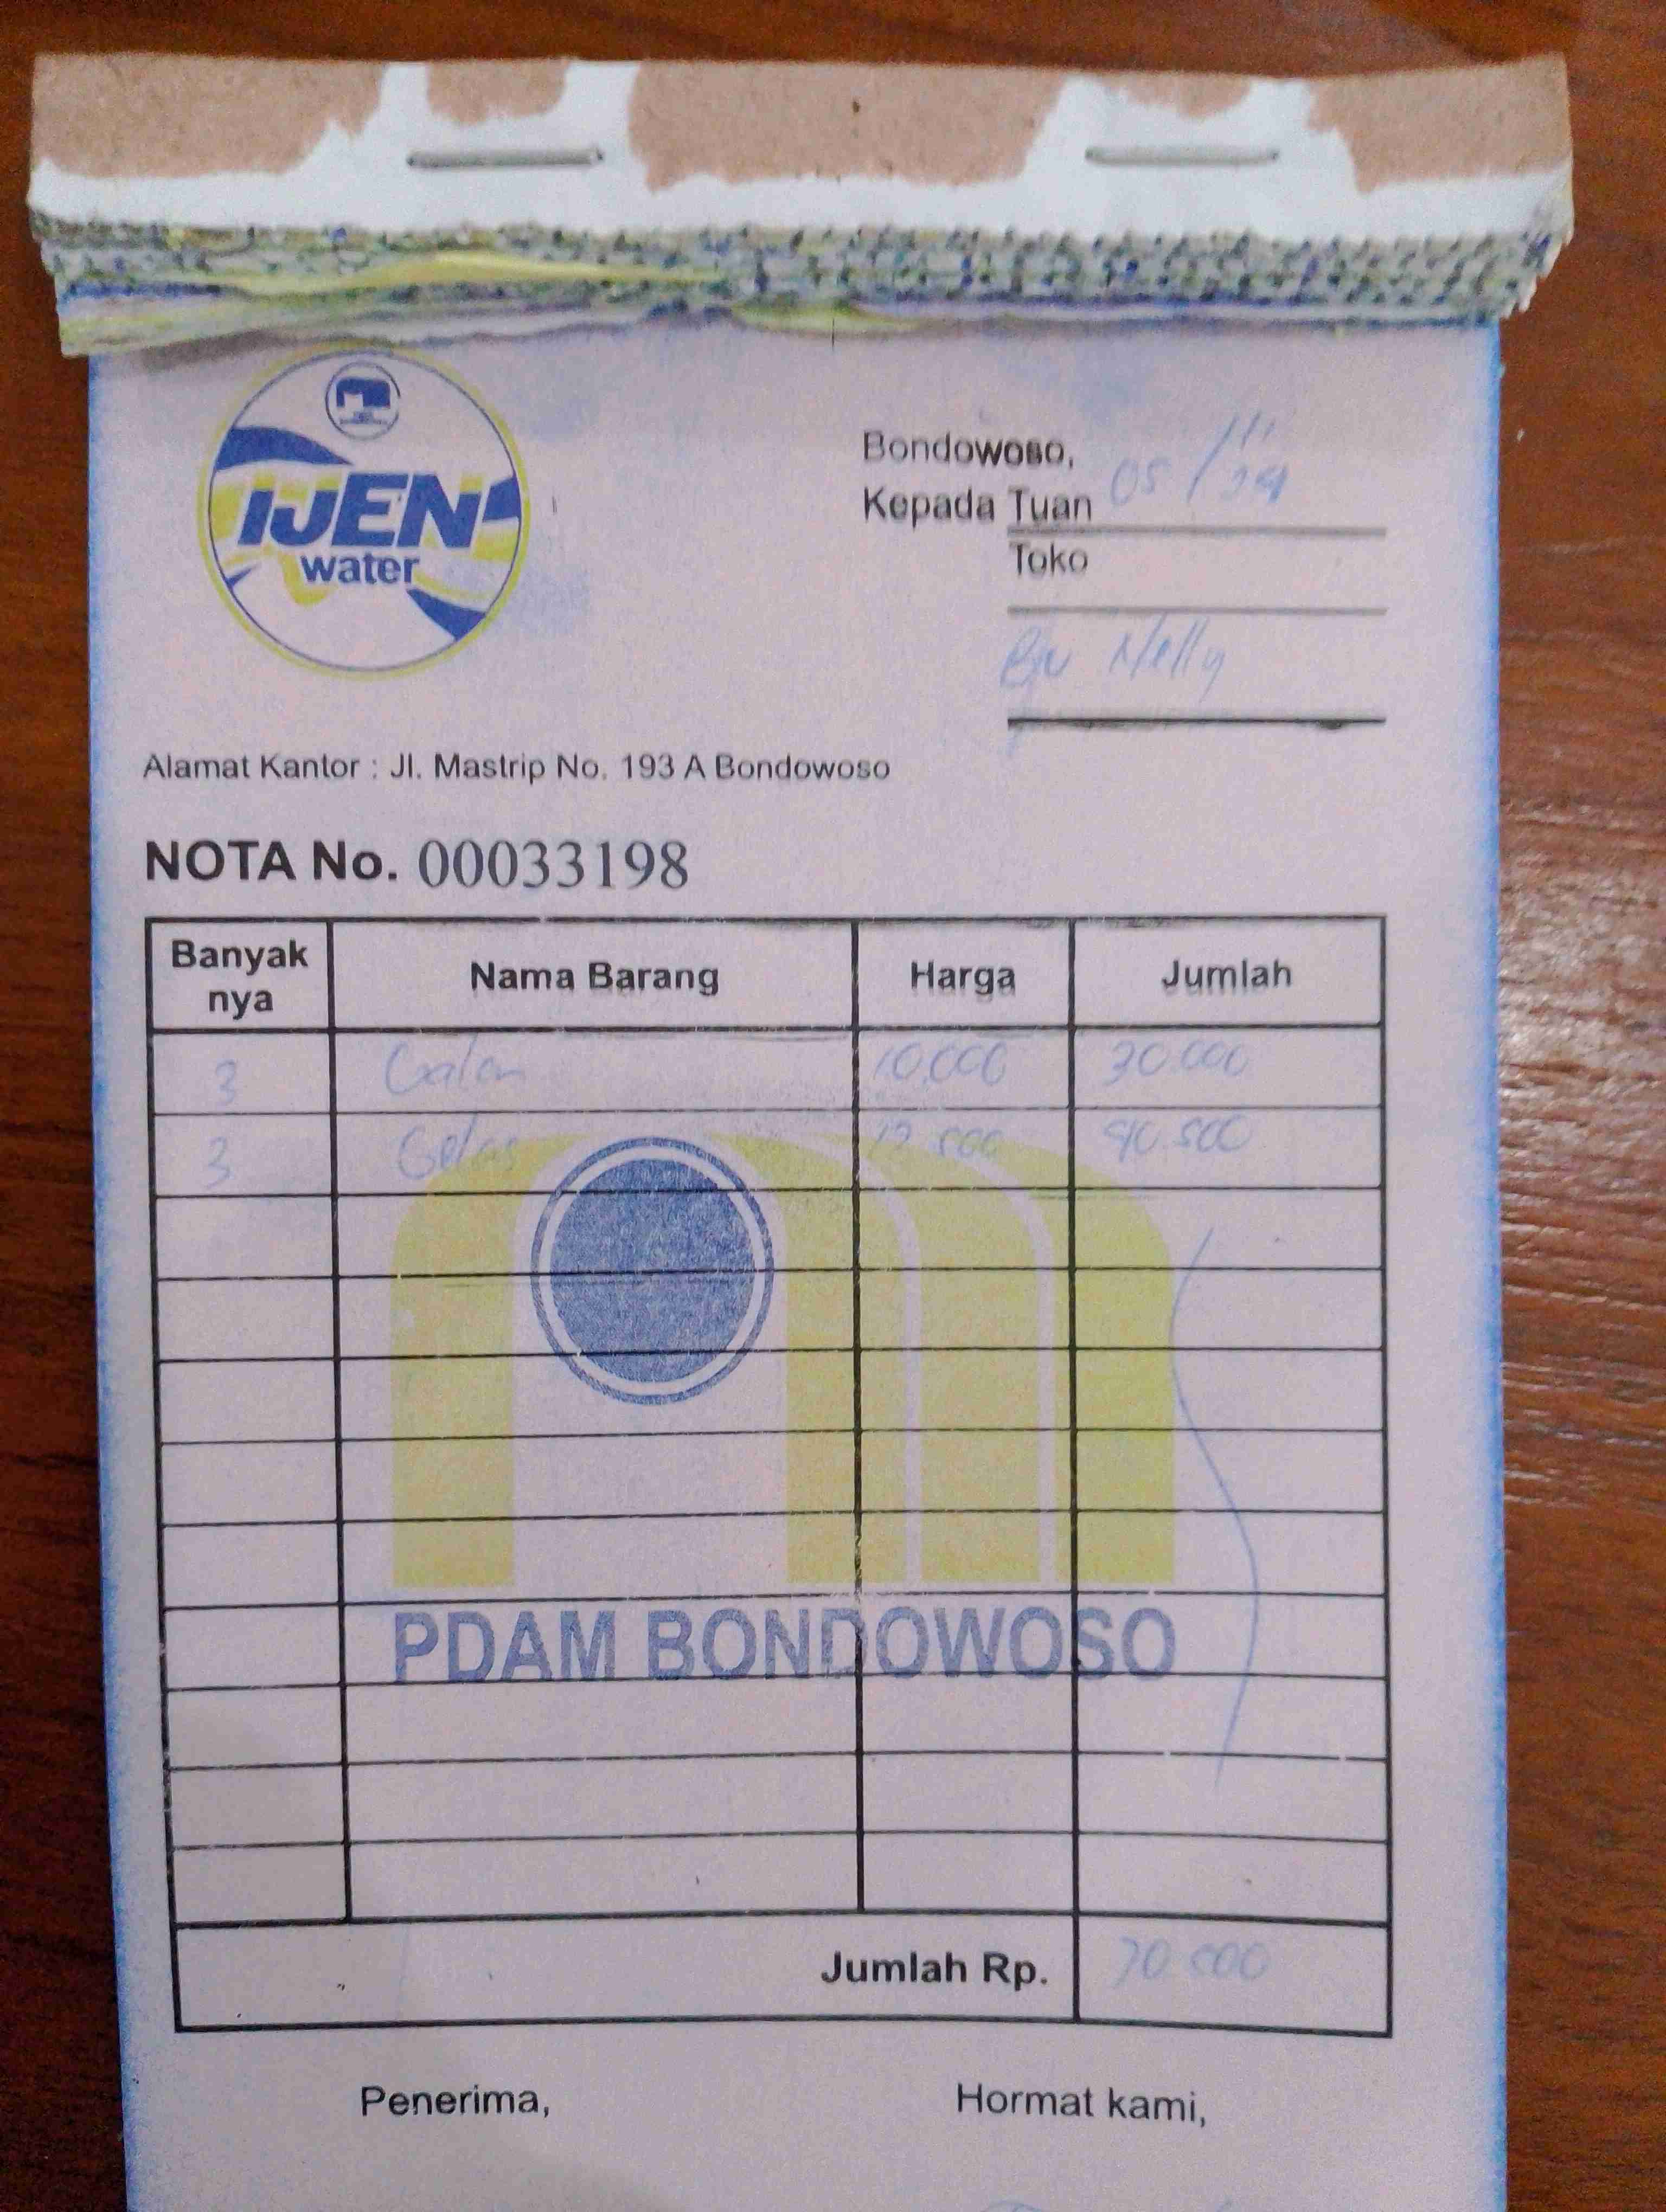 IJEN
water
Bondowoso,
Kepada Tuan
Toko
Bu Nelly
Alamat Kantor : Jl. Mastrip No. 193 A Bondowoso
NOTA No. 00033198
Banyak nya Nama Barang Harga Jumlah
3 Galon 10.000 30.000
3 Gelas 40.500
PDAM BONDOWOSO
Jumlah Rp. 70.000
Penerima, Hormat kami,